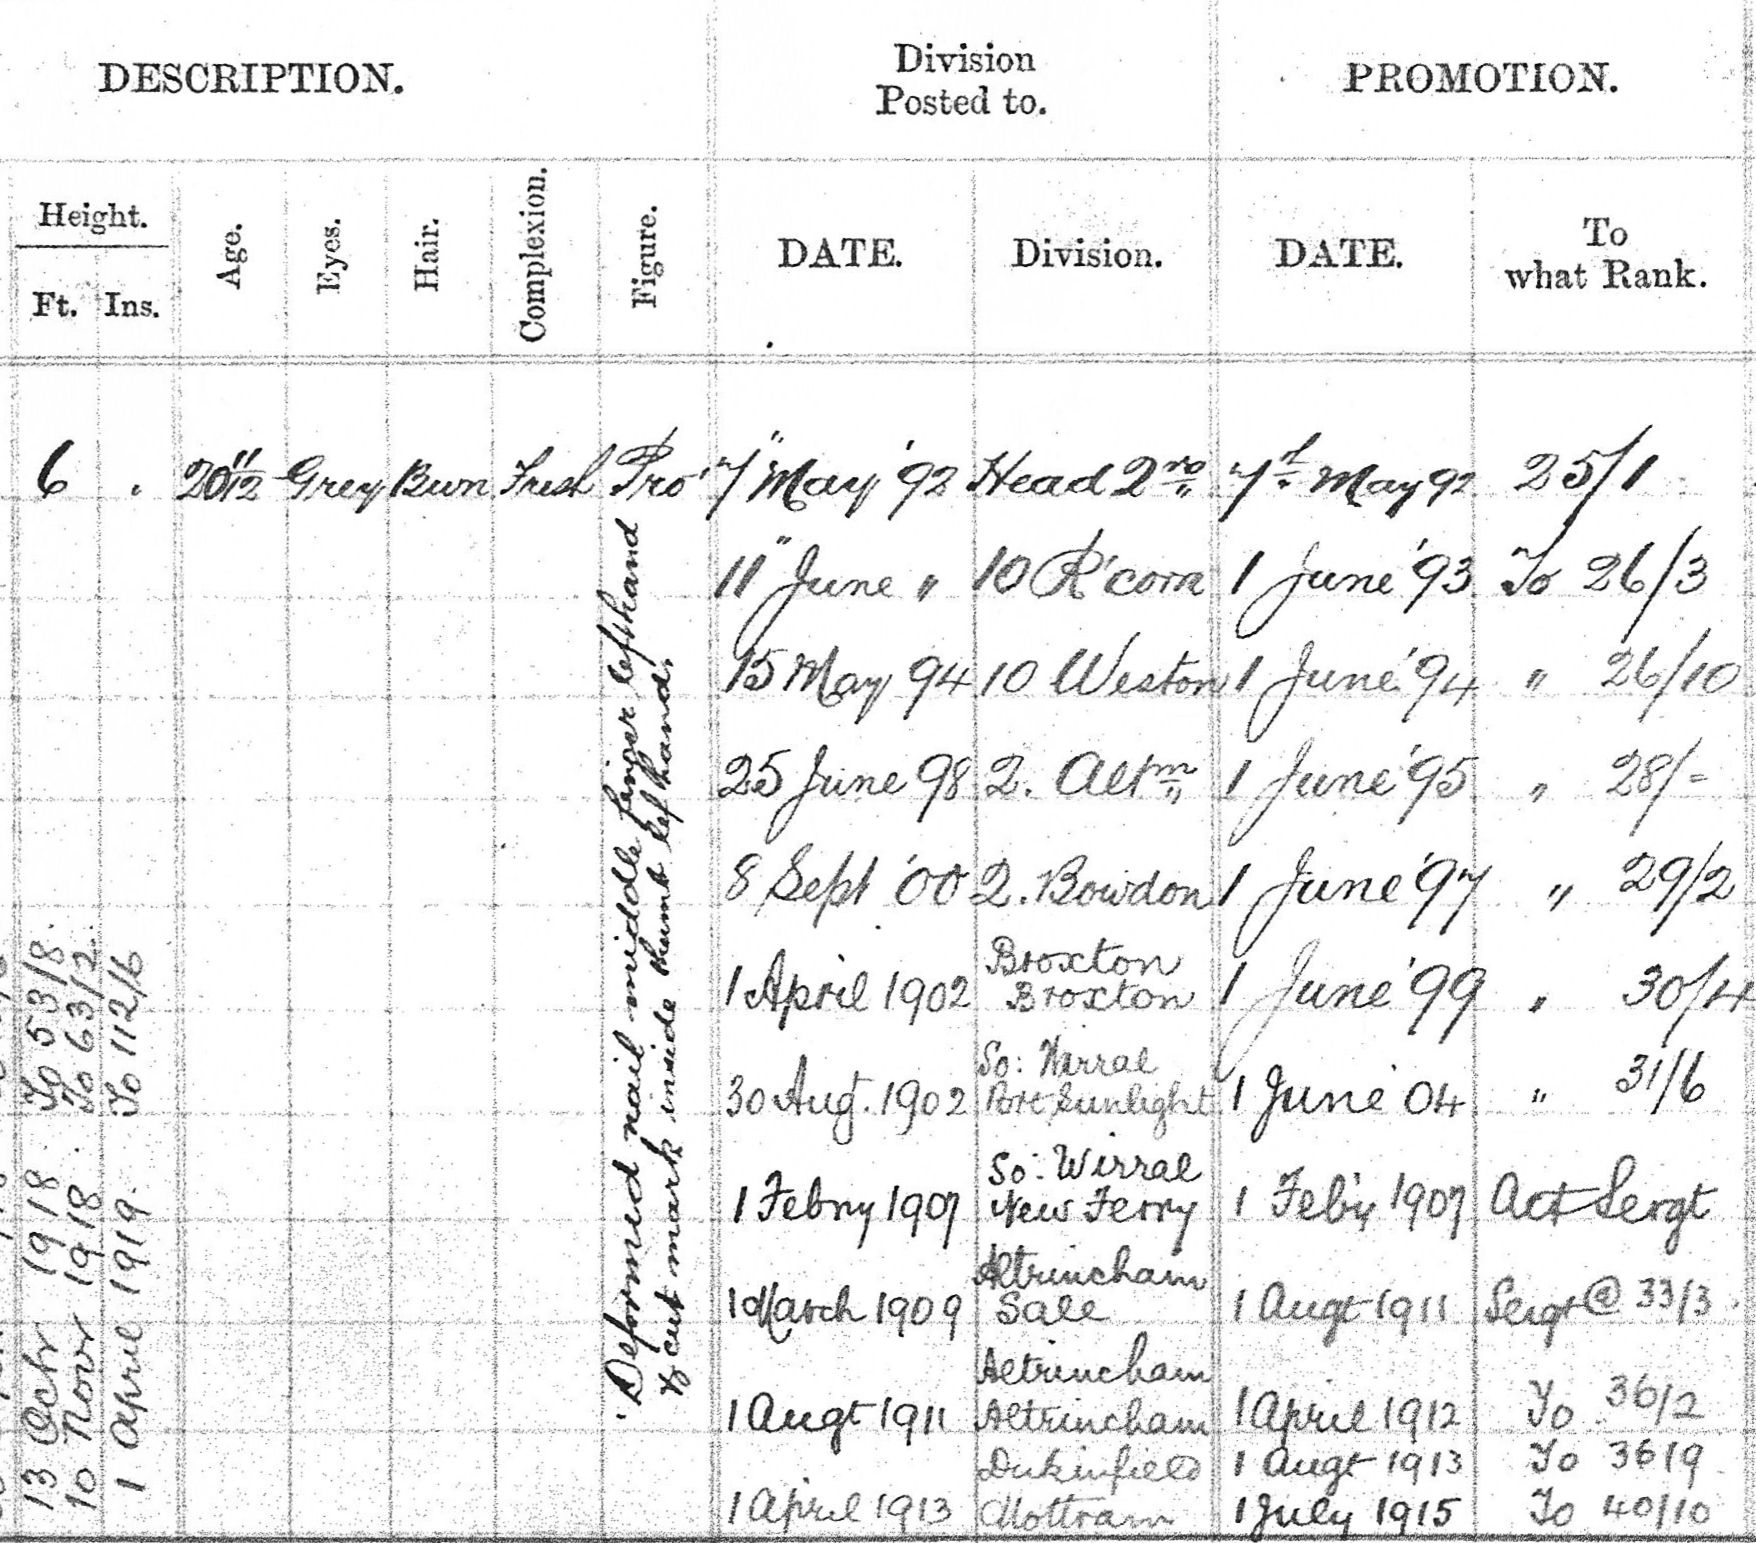 DESCRIPTION.
Division
Posted to.
PROMOTION.
Height.
Ft. Ins.
Age.
Eyes.
Hair.
Complexion.
Figure.
DATE.
Division.
DATE.
To
what Rank.
6 . 20 11/12 Grey Bwn Fresh Pro' 7" May '92 Head 2ro 7th May 92 25/1
11" June " 10 R'corn 1 June '93 To 26/3
15 May 94 10 Weston 1 June '94 " 26/10
25 June 98 2. Altm 1 June '95 " 28/-
8 Sept '00 2. Bowdon 1 June '97 " 29/2
Broxton
1 April 1902 Broxton 1 June '99 " 30/4
So: Wirral
30 Aug. 1902 Port Sunlight 1 June 04 " 31/6
So: Wirral
1 Febry 1907 New Ferry 1 Feb'y 1907 Act Sergt
Altrincham
1 March 1909 Sale 1 Augt 1911 Sergt @ 33/3
Altrincham
1 Augt 1911 Altrincham 1 April 1912 To 36/2
Dukinfield 1 Augt 1913 To 36/9
1 April 1913 Mottram 1 July 1915 To 40/10
Deformed nail middle finger left hand
& cut mark inside thumb left hand.
13 Octr 1918 To 53/8.
10 Novr 1918. To 63/2.
1 April 1919. To 112/6